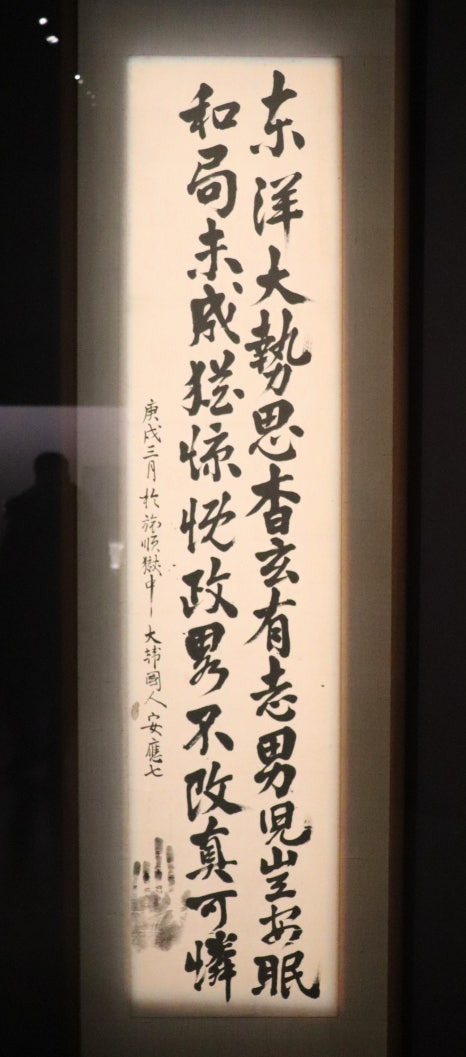 東洋大勢思杳玄有志男児豈安眠
和局未成猶慷慨政畧不改真可憐
庚戌三月於旅順獄中大韓國人安應七